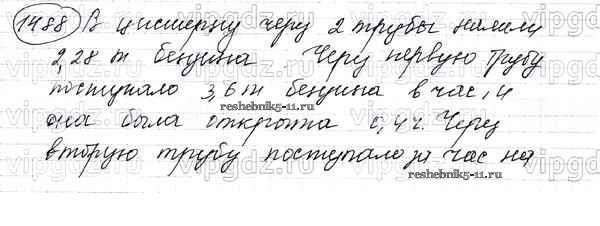 1488 В цистерну через 2 трубы налили
2,28 т бензина. Через первую трубу
поступало 3,6 т бензина в час, и
reshebnik5-11.ru
она была открыта 0,4 ч. Через
вторую трубу поступало за час на
reshebnik5-11.ru